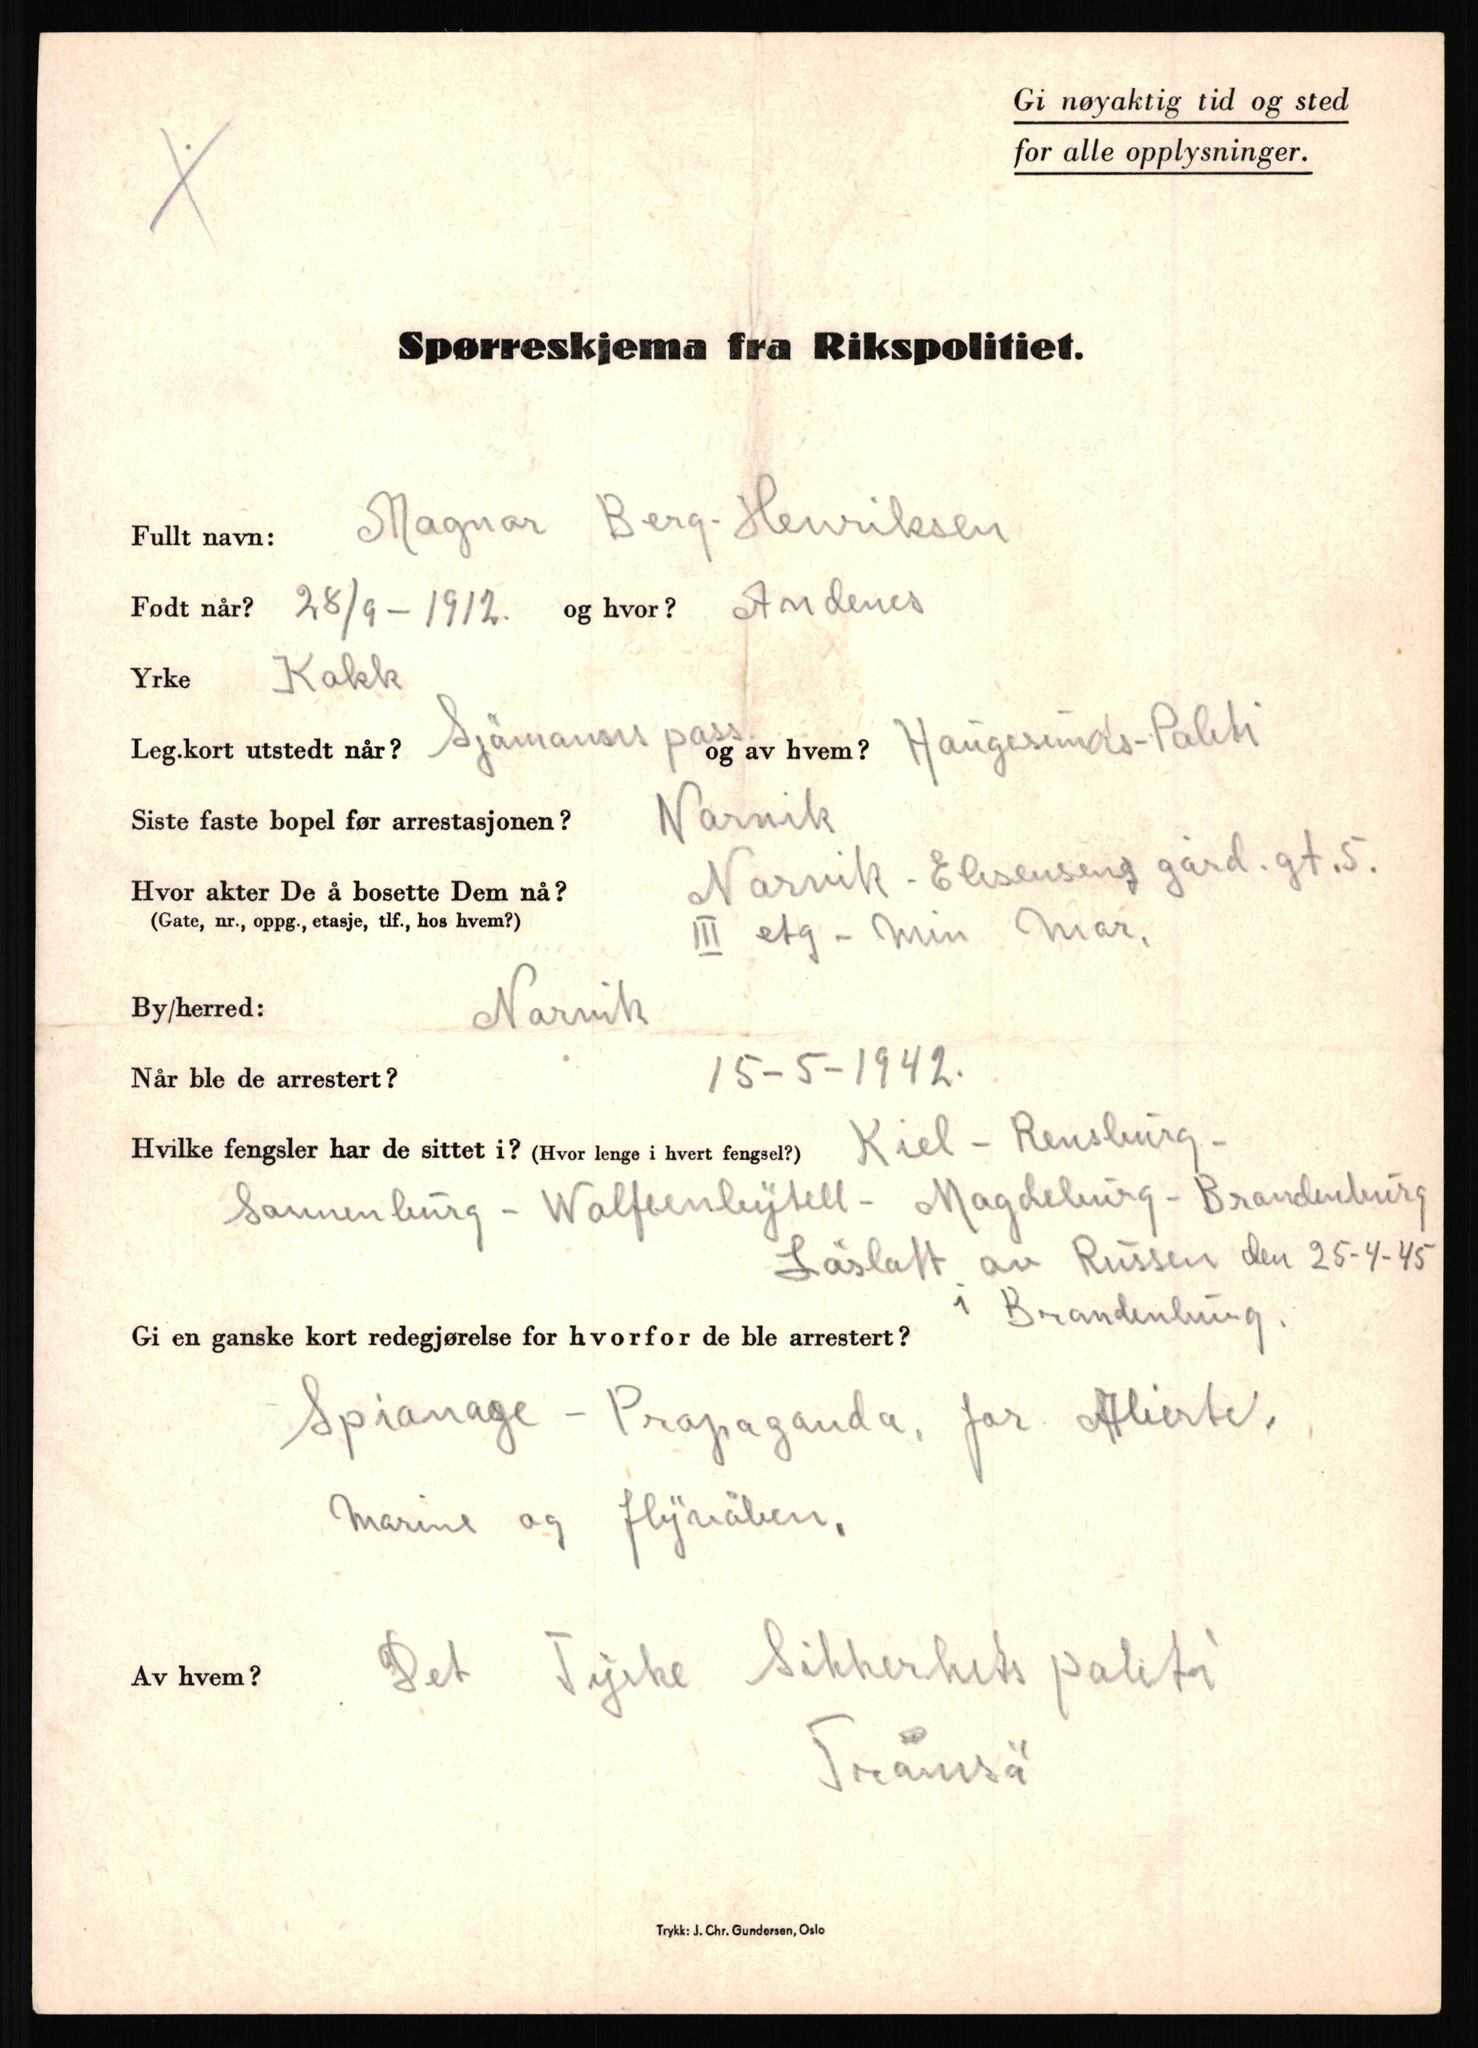 Gi nøyaktig tid og sted
for alle opplysninger.
Spørreskjema fra Rikspolitiet.
Fullt navn: Magnar Berg-Henriksen
Født når? 28/9-1912. og hvor? Andenes
Yrke Kokk
Leg.kort utstedt når? Sjömanns pass. og av hvem? Haugesunds-Politi
Siste faste bopel før arrestasjonen? Narvik
Hvor akter De å bosette Dem nå? Narvik - gård. gt. 5.
(Gate, nr., oppg., etasje, tlf., hos hvem?) III etg - Min Mor.
By/herred: Narvik
Når ble de arrestert? 15-5-1942.
Hvilke fengsler har de sittet i? (Hvor lenge i hvert fengsel?) Kiel - Rensburg -
Sonnenburg - Wolfenbytell - Magdeburg - Brandenburg
Löslatt av Russen den 25-4-45
i Brandenburg.
Gi en ganske kort redegjørelse for hvorfor de ble arrestert?
Spionage - Propaganda, for Alierte,
Marine og flyvåben.
Av hvem? Det Tyske Sikkerhets politi
Tromsö
Trykk: J. Chr. Gundersen, Oslo